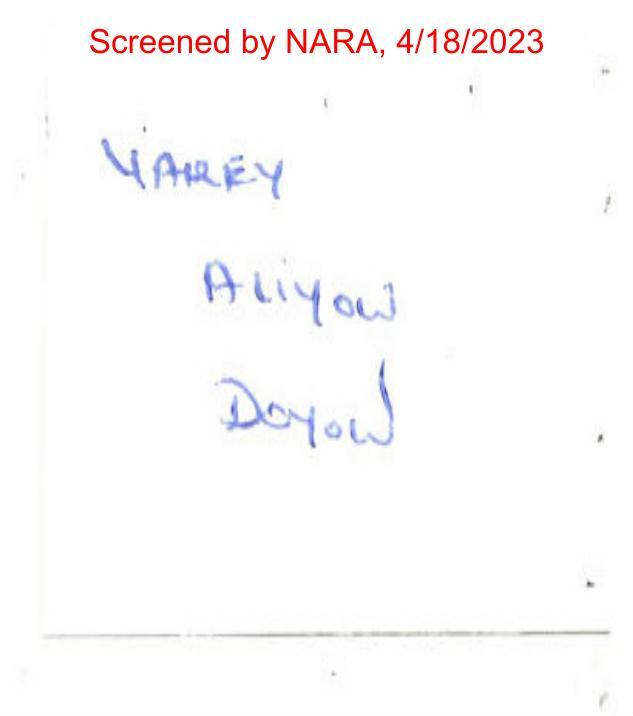 Screened by NARA, 4/18/2023
YAREY
ALiYOW
DOYOW